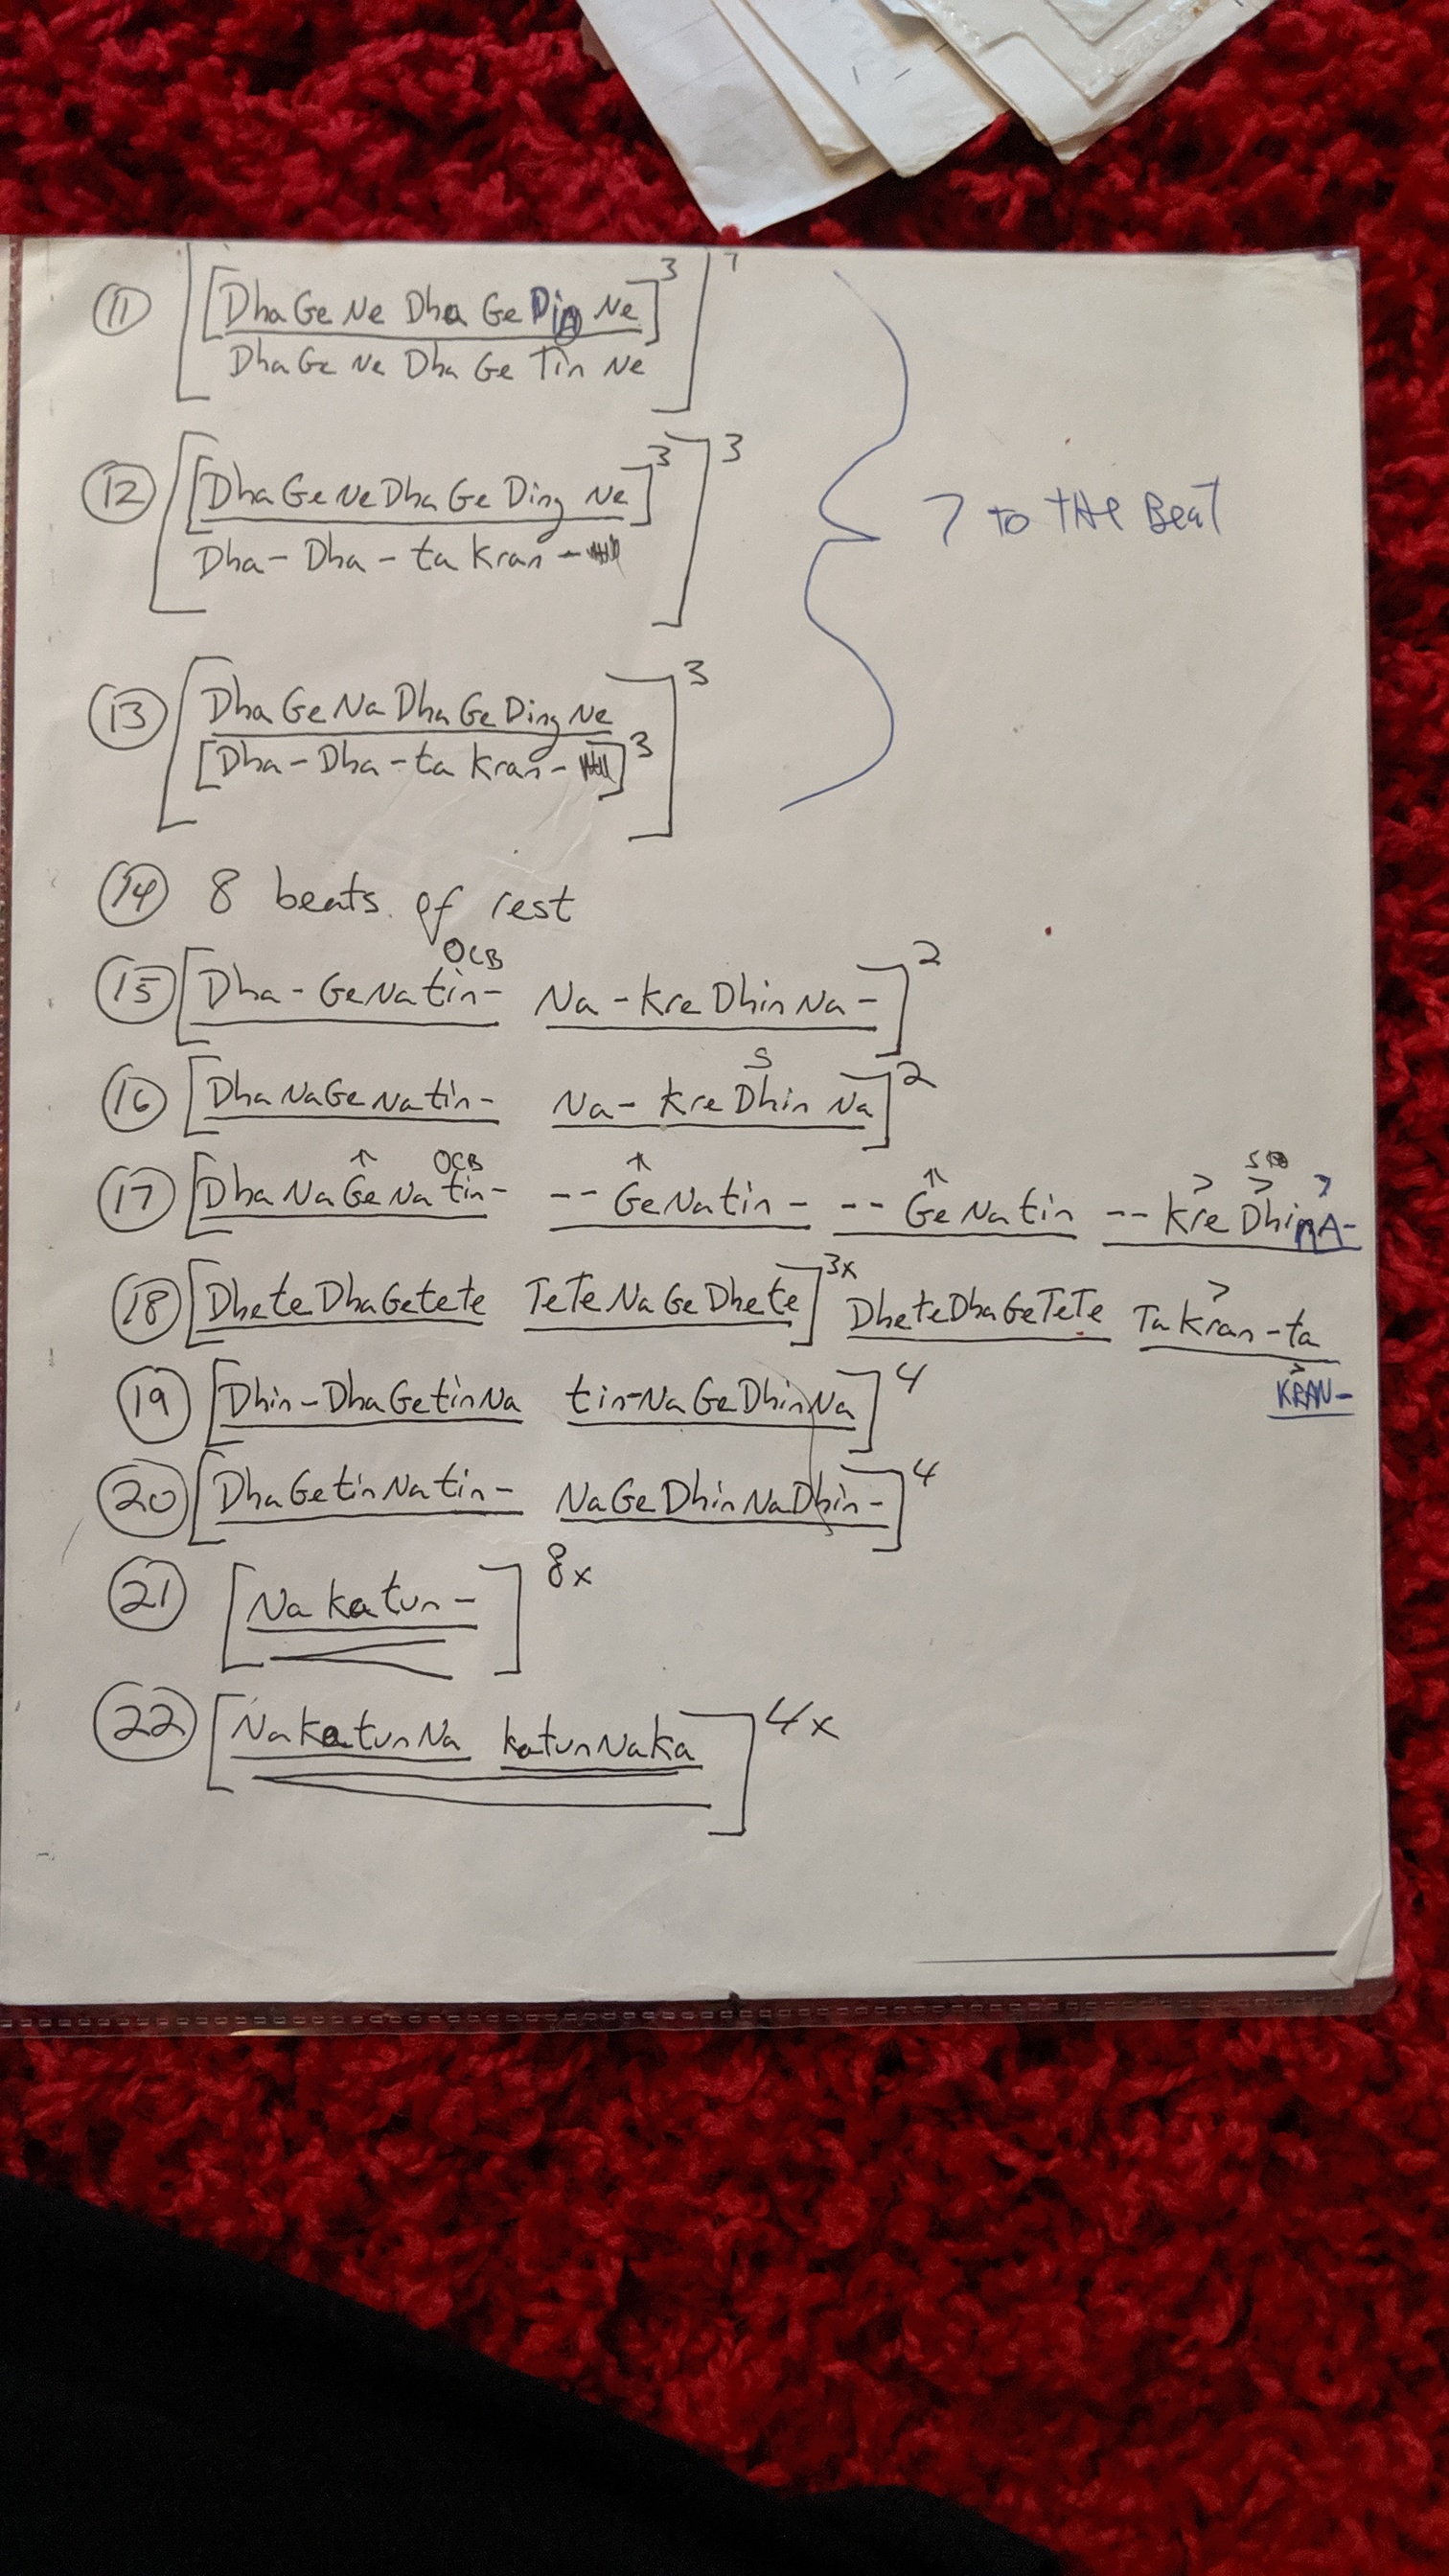 11 [[DhaGe Ne Dha Ge Din Ne]3
DhaGe Ne Dha Ge Tin Ne]
12 [[DhaGeNeDhaGe Ding Ne]3
Dha- Dha - ta Kran -]3
7 to THe BeaT
13 [DhaGeNaDhaGeDing Ne
[Dha-Dha-ta Kran-]3]3
14 8 beats of rest
OCB
15 [Dha-GeNatin- Na-KreDhinNa-]2
S
16 [DhaNaGeNatin- Na-KreDhin Na]2
^ OCB ^ ^ > > >
17 [DhaNaGeNatin- --GeNatin- --GeNatin --KreDhinA-
3x >
18 [DheteDhaGetete TeTeNaGeDhete] DheteDhaGeTeTe TaKran-ta
>
KRAN-
19 [Dhin-DhaGetinNa tin-NaGeDhinNa]4
20 [DhaGetinNatin- NaGeDhinNaDhin-]4
21 [Nakatun-]8x
22 [NakatunNa katunNaka]4x